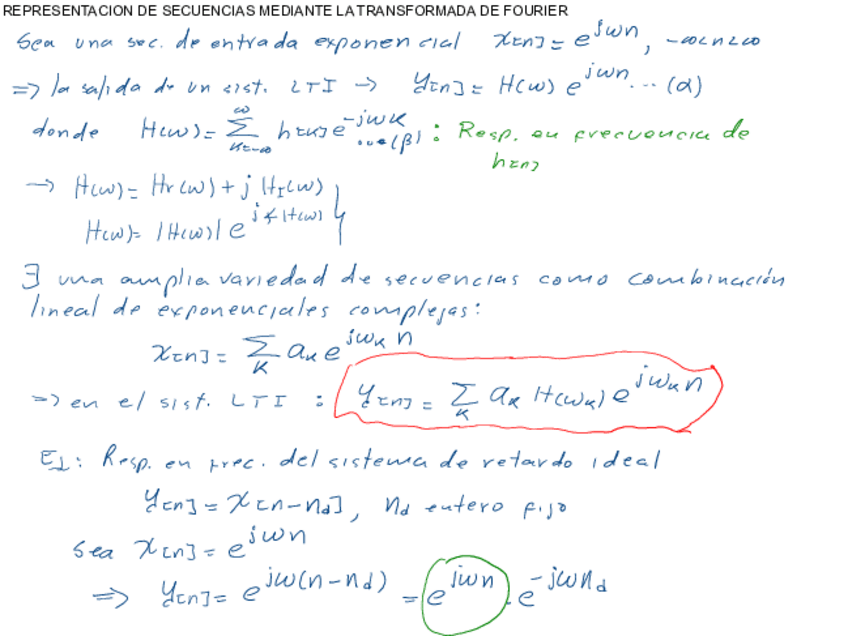 REPRESENTACION DE SECUENCIAS MEDIANTE LA TRANSFORMADA DE FOURIER
Sea una sec. de entrada exponencial x[n] = e^{jωn}, -∞<n<∞
=> la salida de un sist. LTI → y[n] = H(ω) e^{jωn} ... (α)
donde H(ω) = Σ_{k=-∞}^{∞} h[k] e^{-jωk} ...(β) : Resp. en frecuencia de
h[n]
→ H(ω) = Hr(ω) + j H_I(ω)
H(ω) = |H(ω)| e^{j∡H(ω)}
∃ una amplia variedad de secuencias como combinación
lineal de exponenciales complejas:
x[n] = Σ_k a_k e^{jω_k n}
=> en el sist. LTI : y[n] = Σ_k a_k H(ω_k) e^{jω_k n}
EJ: Resp. en frec. del sistema de retardo ideal
y[n] = x[n-n_d], n_d entero fijo
Sea x[n] = e^{jωn}
=> y[n] = e^{jω(n-n_d)} = e^{jωn} . e^{-jωn_d}